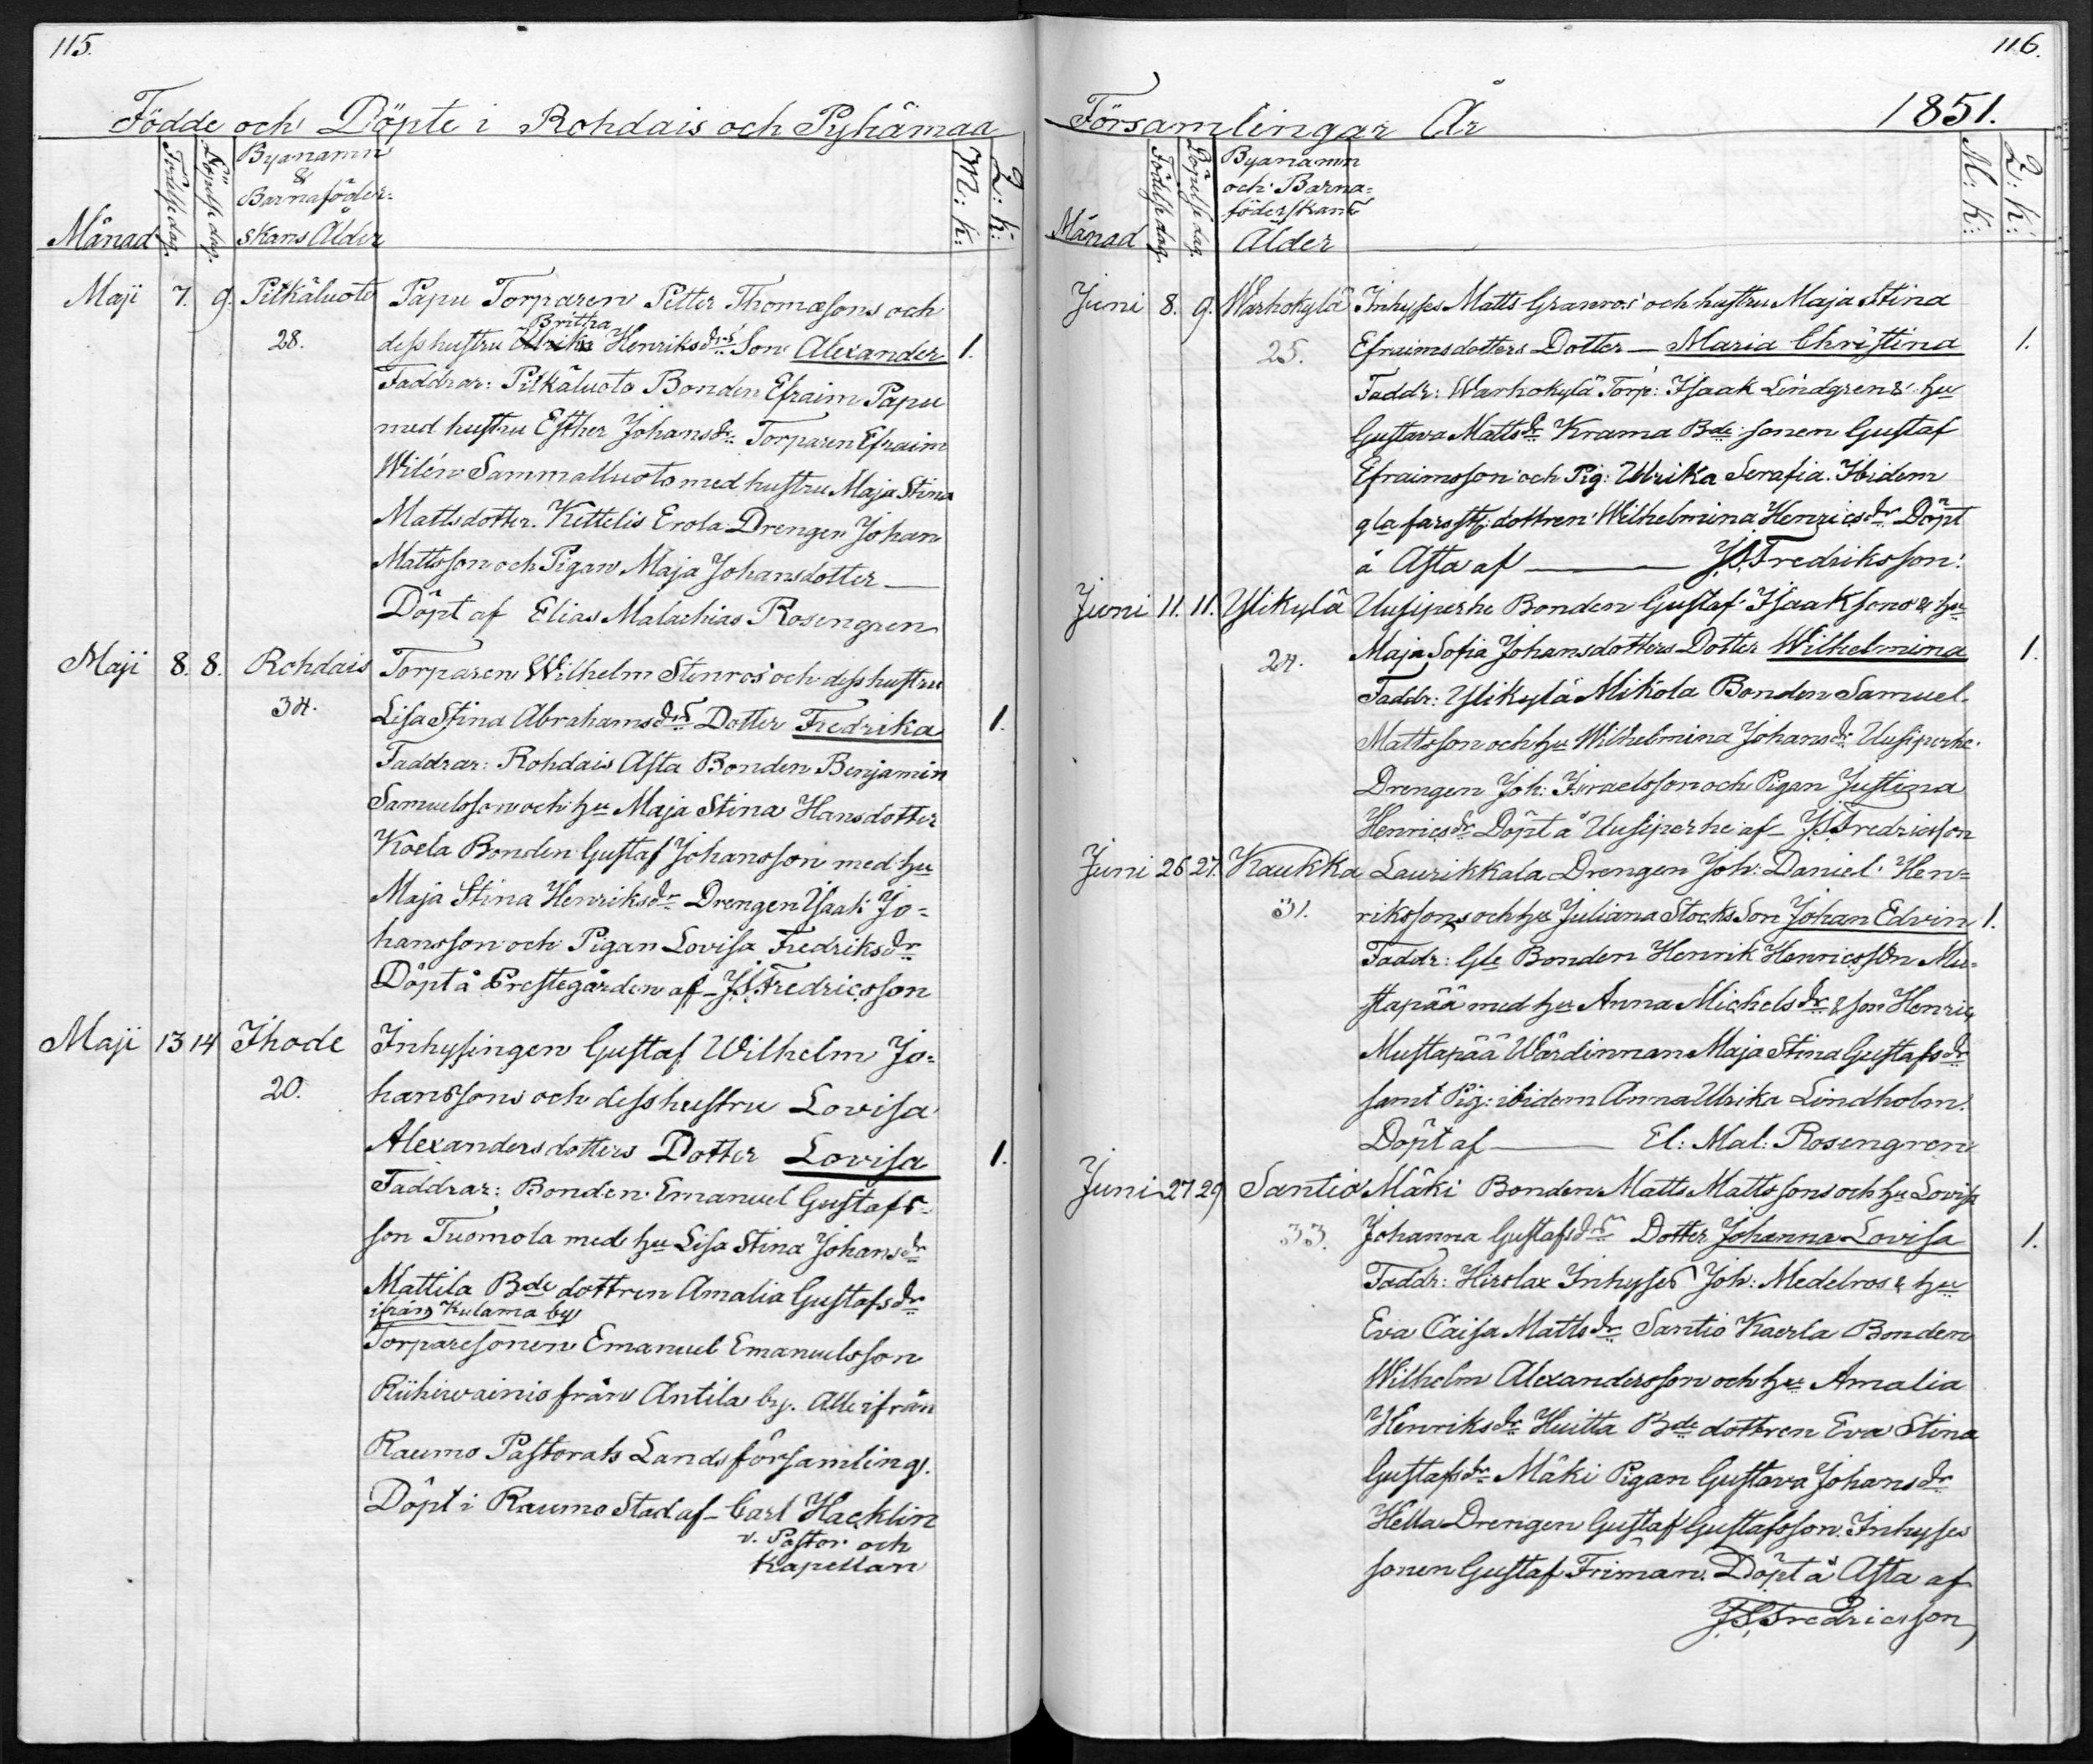 115.
Födde och Döpte i Rohdais och Pyhämaa
Månad
Födelse dag.
Döpelse dag.
Byanamn
&
Barnaföder-
skans Ålder
M: K:
Q: K:
Maji 7. 9. Pitkäluoto Papu Torparen Petter Thomæsons och
Brittha
28. dess hustru Ulrika Henriksdrs Son Alexander 1.
Faddrar: Pitkäluoto Bonden Efraim Papu
med hustru Esther Johansdr Torparen Efraim
Wilén Sammalluoto med hustru Maja Stina
Mattsdotter. Kettelis Erola Drengen Johan
Mattsson och Pigan Maja Johansdotter —
Döpt af Elias Malachias Rosengren
Maji 8. 8. Rohdais Torparen Wilhelm Stenros' och dess hustru
34. Lisa Stina Abrahamsdrs Dotter Fredrika 1.
Faddrar: Rohdais Asta Bonden Benjamin
Samuelsson och hu Maja Stina Hansdotter
Koela Bonden Gustaf Johansson med hu
Maja Stina Henriksdr Drengen Isaak Jo=
hansson och Pigan Lovisa Fredriksdr
Döpt å Prestegården af – J.S. Fredricsson
Maji 13 14 Ihode Inhysingen Gustaf Wilhelm Jo=
20. hanssons och dess hustru Lovisa
Alexandersdotters Dotter Lovisa 1.
Faddrar: Bonden Emanuel Gustafs-
son Tuomola med hu Lisa Stina Johansdr
Mattila Bde dottren Amalia Gustafsdr
ifrån Kulama by
Torparesonen Emanuel Emanuelsson
Riihiwainio från Antila by. Alle ifrån
Raumo Pastorats Landsförsamling.
Döpt i Raumo Stad af – Carl Hacklin
v. Pastor och
Kapellan
116.
Församlingar År 1851.
Månad
Födelse dag.
Döpelse dag.
Byanamn
och Barna=
föderskans
Ålder
M: K:
Q: K:
Juni 8. 9. Warhokylä Inhyses Matts Granros' och hustru Maja Stina
25. Efraimsdotters Dotter — Maria Christina 1.
Faddr: Warhokylä Torp: Isaak Lindgren & hu
Gustava Mattsdr Krama Bde sonen Gustaf
Efraimsson och Pig: Ulrika Serafia. Ibidem
gla dottren Wilhelmina Henricsdr Döpt
å Asta af — J.S. Fredriksson.
Juni 11. 11. Ylikylä Uusiperhe Bonden Gustaf Isaaksons & hu
24. Maja Sofia Johansdotters Dotter Wilhelmina 1.
Faddr: Ylikylä Mikola Bonden Samuel
Mattsson och hu Wilhelmina Johansdr Uusiperhe
Drengen Joh: Israelsson och Pigan Justina
Henricsdr Döpt å Uusiperhe af – J.S. Fredricsson
Juni 26 27. Kaukka Laurikkala Drengen Joh: Daniel Hen=
31. rikssons och hus Juliana Stocks Son Johan Edvin 1.
Faddr: Gle Bonden Henrik Henricsson Mu-
stapää med hu Anna Michelsdr & son Henric
Mustapää Wärdinnan Maja Stina Gustafsdr
samt Pig: ibidem Anna Ulrika Lindholm.
Döpt af — El: Mal: Rosengren
Juni 27 29 Santio Mäki Bonden Matts Mattssons och hu Lovisa
33. Johanna Gustafsdrs Dotter Johanna Lovisa 1.
Faddr: Hirslax Inhyses Joh: Medelros & hu
Eva Caisa Mattsdr Santio Kaerla Bonden
Wilhelm Alexandersson och hu Amalia
Henriksdr Huitta Bde dottren Eva Stina
Gustafsdr Mäki Pigan Gustava Johansdr
Hella Drengen Gustaf Gustafsson. Inhyses
sonen Gustaf Friman. Döpt å Asta af
J.S. Fredricsson